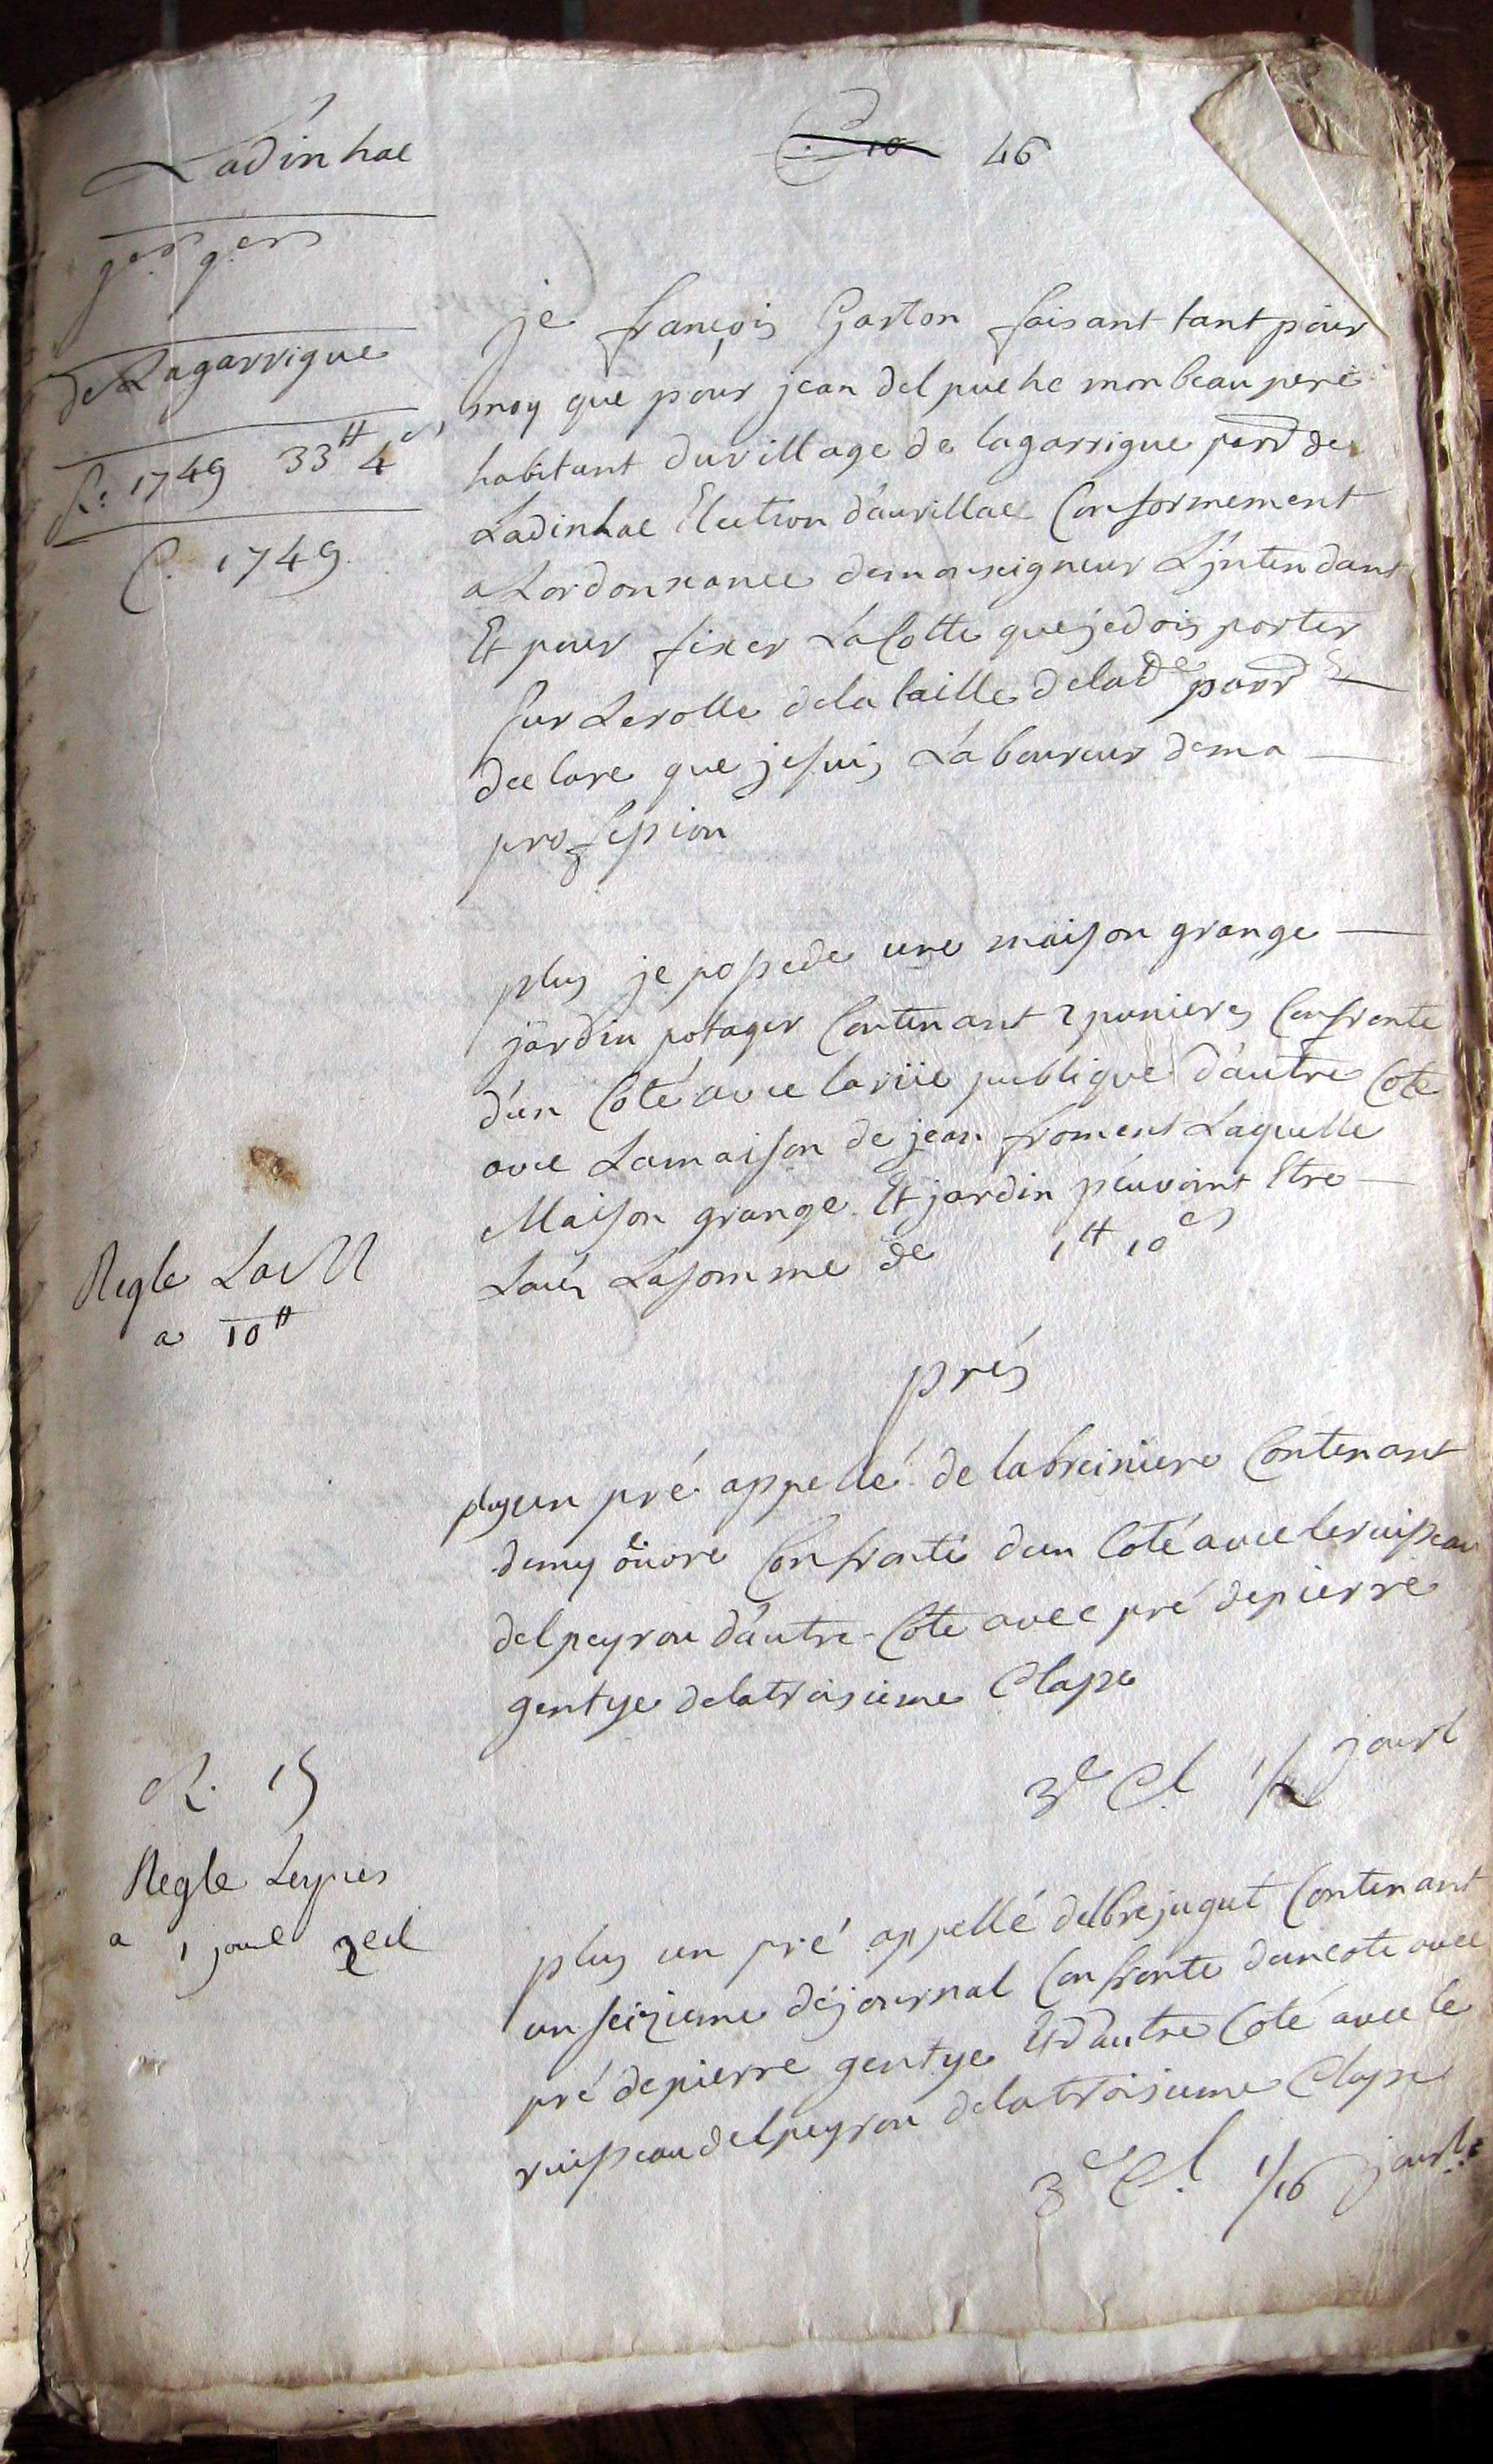 Ladinhac
46
de Lagarrigue
R: 1749 33# 4s
C. 1749
je françois Garton faisant tant pour
moy que pour jean delpuehc mon beau pere
habitant du village de lagarrigue parr de
Ladinhac Election d'aurillac Conformement
a Lordonnance de monseigneur L'jntendant
Et pour fixer La Cotte que je dois porter
sur Le rolle de la taille de lade parr
declare que je suis Laboureur de ma
profession
plus je possede une maison grange
jardin potager Contenant 2 punieres Confronte
d'un Coté avec la rüe publique d'autre Coté
avec La maison de jean froment Laquelle
Maison grange Et jardin peuvoint Etre
Loués La somme de 1# 10s
Regle La M
a 10#
prés
plus un pré appellé de la breiniere Contenant
demy öuvre Confronte d'un Coté avec le ruisseau
del peyrou d'autre Coté avec pré de pierre
gentye de la troisieme Classe
3e Cl 1/2 jourl
R. 15
Regle Les prés
a 1 jourl 3e cl
plus un pré appellé del brejugut Contenant
un seizieme de journal Confronte d'un coté avec
pré de pierre gentye Et d'autre Coté avec le
ruisseau del peyrou de la troisieme Classe
3e Cl 1/16 jourl